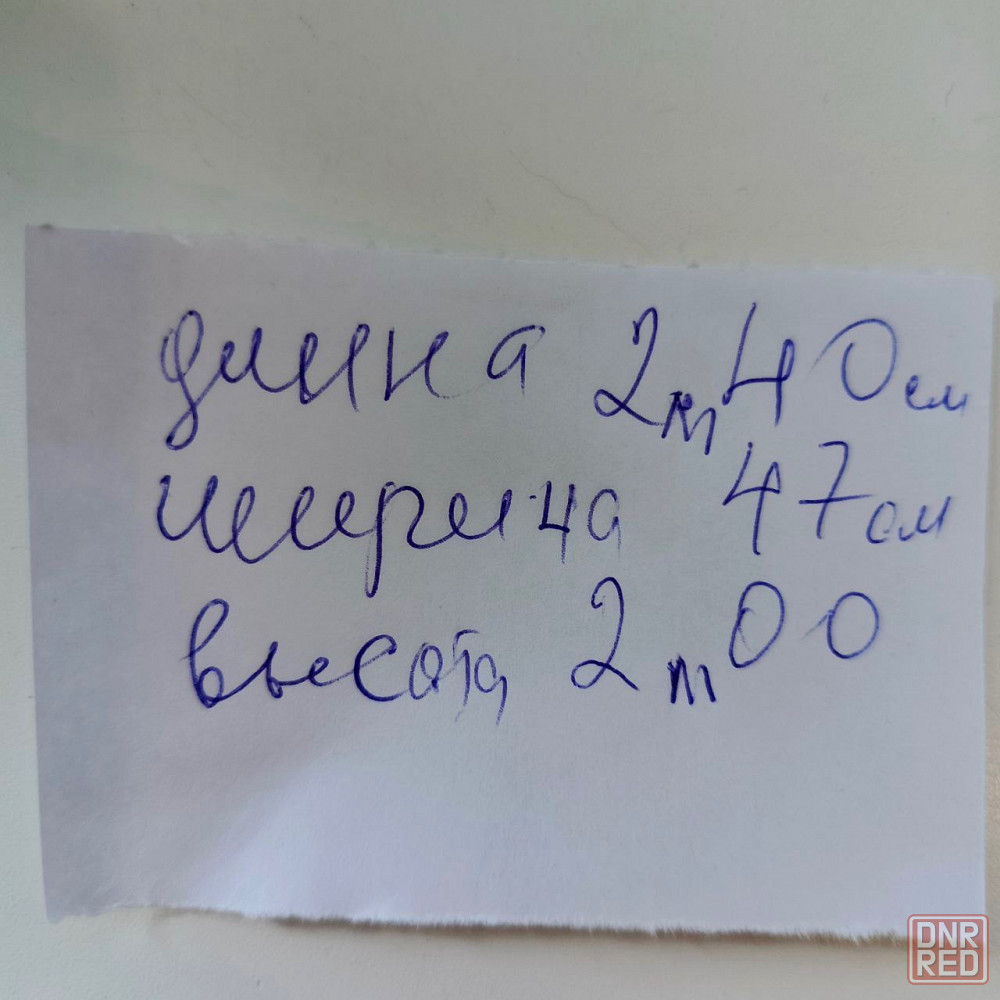 длина 2m 40 см
ширина 47 см
высота 2m 00
DNR
RED